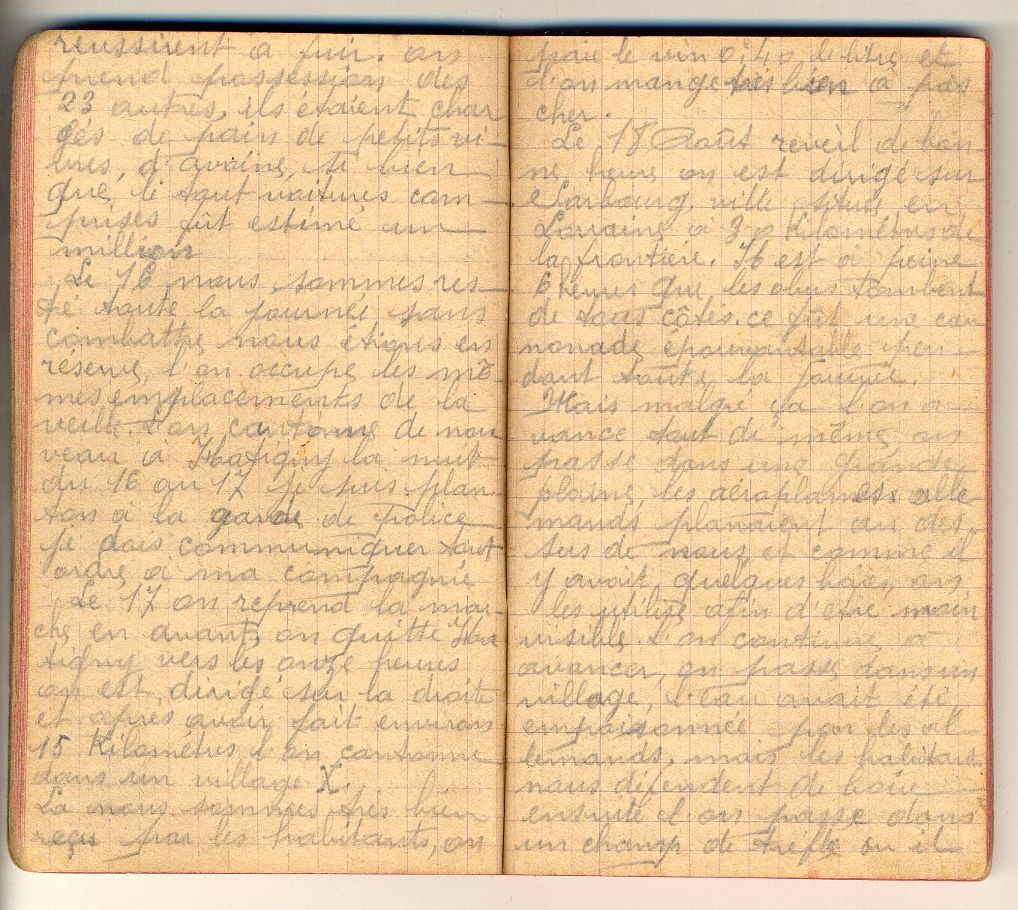 réussirent à fuir. on
prend possession des
23 autres, ils étaient char
gés de pain de petits vi-
vres, d'avoine, si bien
que, le tout voitures com-
prises fût estimé un
million
Le 16 nous sommes res-
té toute la journée sans
combattre, nous étions en
réserve, l'on occupe les mê-
mes emplacements de la
veille. L'on cantonne de nou
veau à Hattigny la nuit
du 16 au 17 je suis plan
ton à la garde de police
je dois communiquer tout
ordre à ma compagnie
Le 17 on reprend la mar
che en avant, on quitte Hat
tigny vers les onze heures
on est dirigé sur la droite
et après avoir fait environ
15 Kilomètres l'on cantonne
dans un village X.
La nous sommes très bien
reçu par les habitants, on
paie le vin 0f,40 le litre et
l'on mange très bien a pas
cher.
Le 18 Août reveil de bon-
ne heure on est dirigé sur
Sarbourg, ville située en
Lorraine à 30 Kilomètres de
la frontière. Il est à peine
6 heures que les obus tombent
de tous côtés. ce fût une can
nonade épouvantable pen-
dant toute la journée.
Mais malgré ça l'on a-
vance tout de même, on
passe dans une grande
plaine, les aéroplanes alle
mands planaient au des
sus de nous, et comme il
y avait quelques haies, on
les utilise afin d'être moin
visible. L'on continue à
avancer, on passe dans un
village, l'eau avait été
empoisonnée par les al-
lemands, mais les habitants
nous défendent de boire
ensuite l'on passe dans
un champ de trèfle ou il